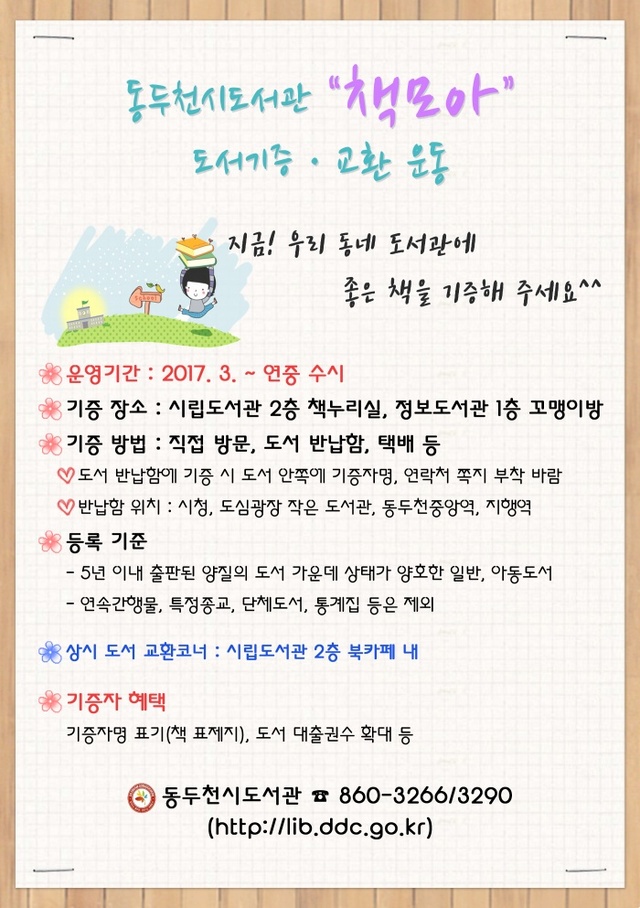 동두천시도서관 "책모아"
도서기증 · 교환 운동
지금! 우리 동네 도서관에
좋은 책을 기증해 주세요^^
School
운영기간 : 2017. 3. ~ 연중 수시
기증 장소 : 시립도서관 2층 책누리실, 정보도서관 1층 꼬맹이방
기증 방법 : 직접 방문, 도서 반납함, 택배 등
도서 반납함에 기증 시 도서 안쪽에 기증자명, 연락처 쪽지 부착 바람
반납함 위치 : 시청, 도심광장 작은 도서관, 동두천중앙역, 지행역
등록 기준
- 5년 이내 출판된 양질의 도서 가운데 상태가 양호한 일반, 아동도서
- 연속간행물, 특정종교, 단체도서, 통계집 등은 제외
상시 도서 교환코너 : 시립도서관 2층 북카페 내
기증자 혜택
기증자명 표기(책 표제지), 도서 대출권수 확대 등
동두천시도서관 ☎ 860-3266/3290
(http://lib.ddc.go.kr)